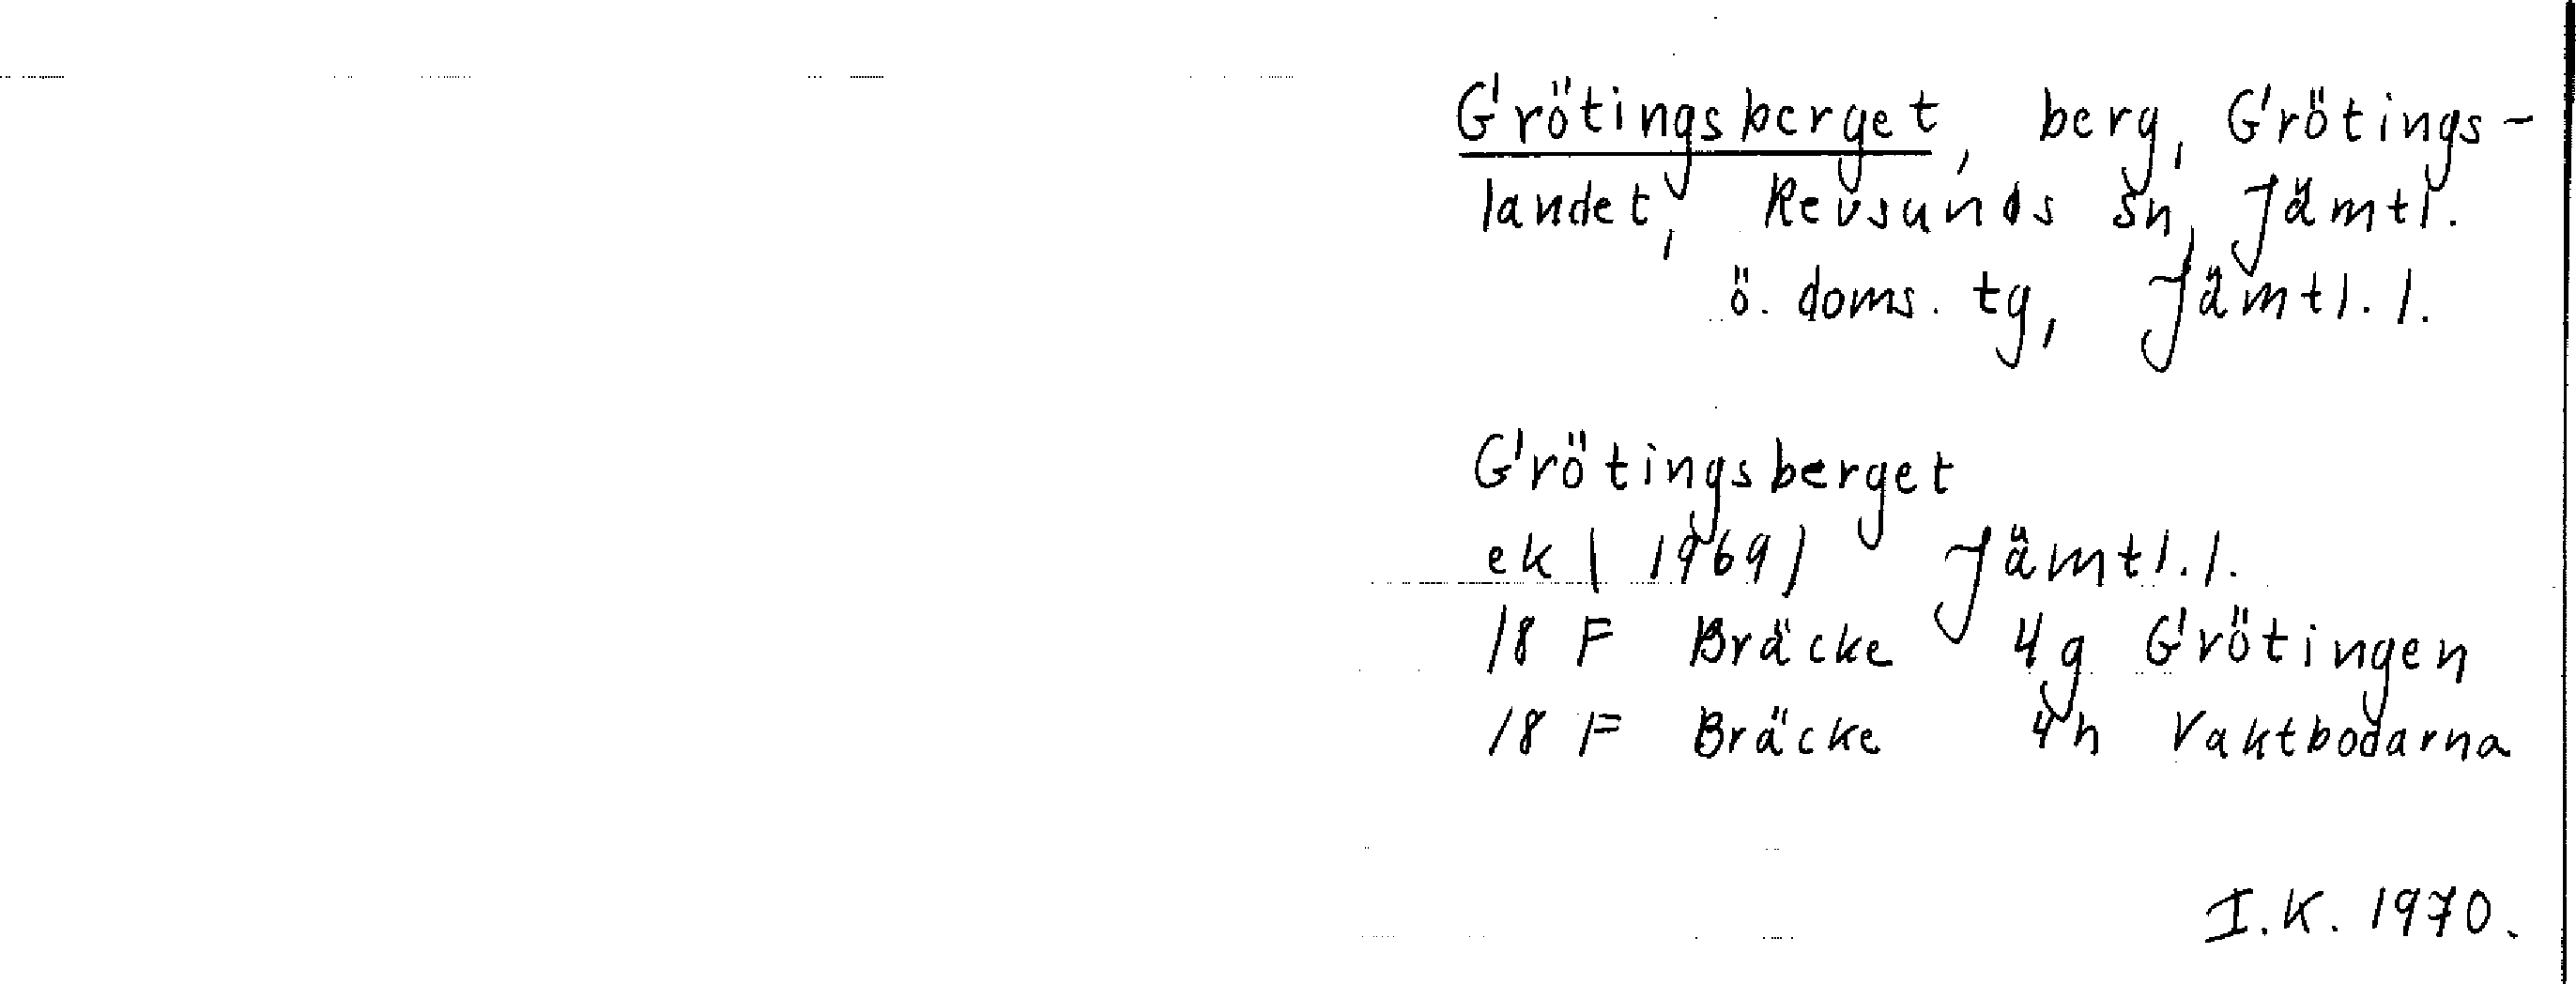 Grötingsberget, berg, Grötings-
landet, Revsunds sn, Jämtl.
ö. doms. tg, Jämtl. l.
Grötingsberget
ek (1969) Jämtl. l.
18 F Bräcke 4g Grötingen
18 F Bräcke 4h Vaktbodarna
I.K. 1970.